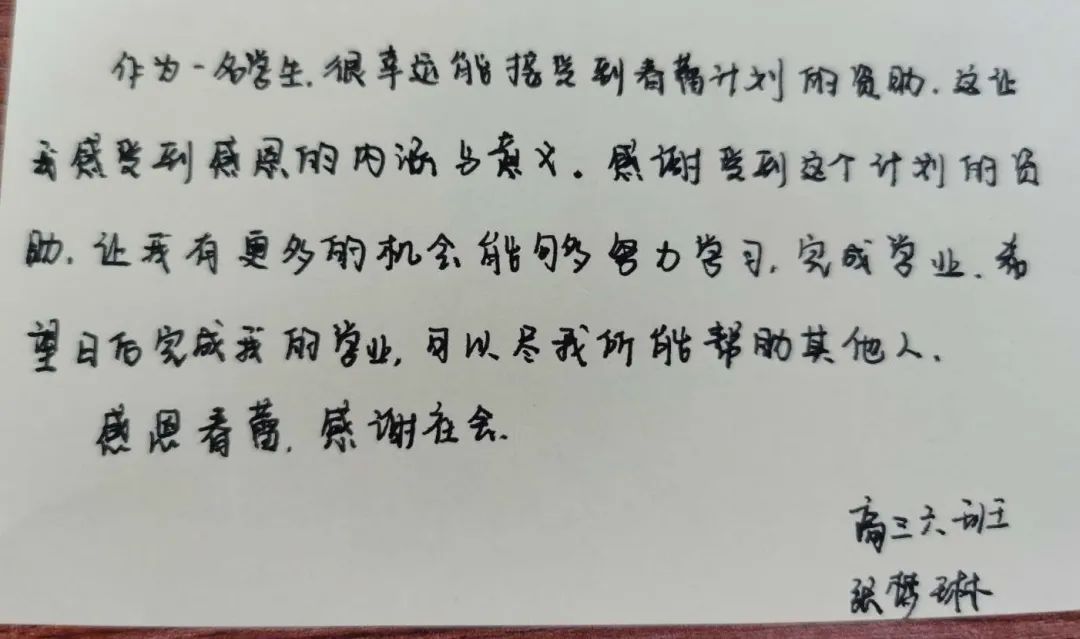 作为一名学生,很幸运能接受到春蕾计划的资助,这让
我感受到感恩的内涵与意义。感谢受到这个计划的资
助,让我有更多的机会能够努力学习,完成学业,希
望日后完成我的学业,可以尽我所能帮助其他人.
感恩春蕾,感谢社会.
高三六班
张梦琳